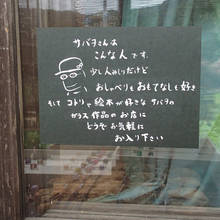 サバヲさんは
こんな人です.
少し人みしりだけど
おしゃべりもおもてなしも好き
そして コトリや絵本が好きな サバヲの
ガラス作品のお店に
どうぞ お気軽に
お入り下さい